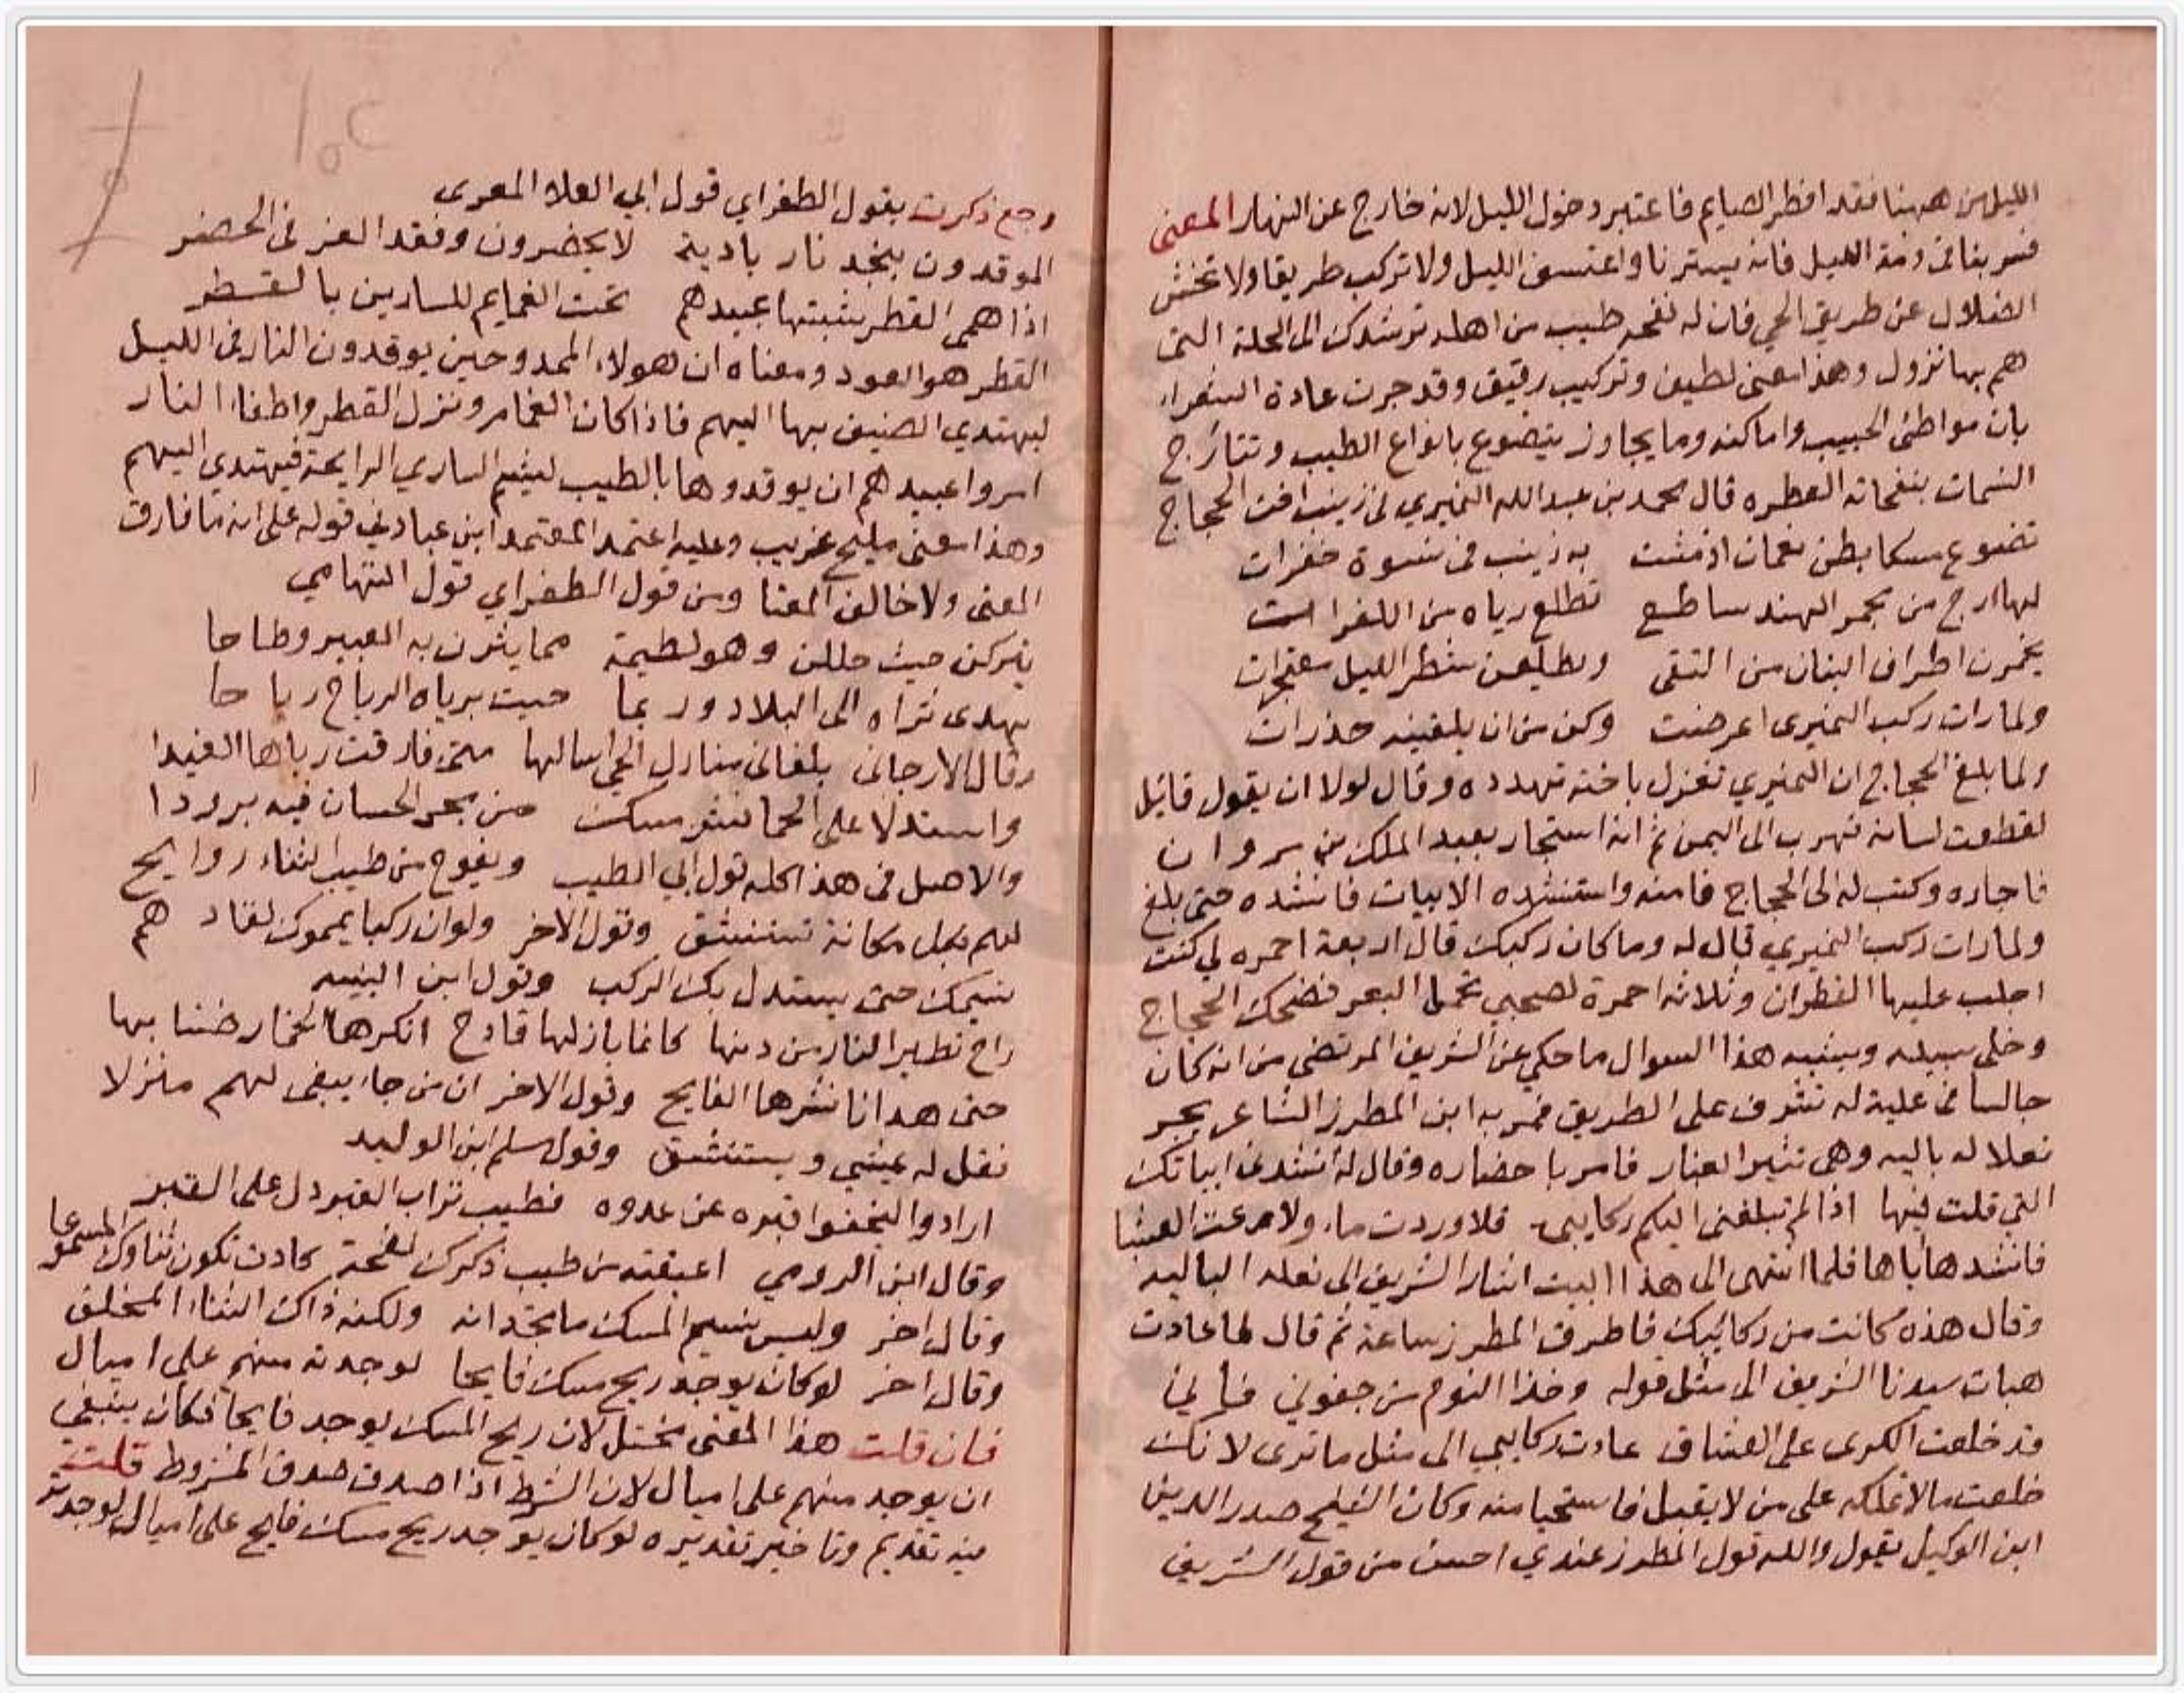 الليل من ههنا فقد افطر الصايم فاعتبر دخول الليل لانه خارج عن النهار المعنى
فسر بنا فى ذمة الليل فانه يسترنا واعتسف الليل ولا تركب طريقا ولا تخش
الضلال عن طريق الحي فان له نفحه طيب من اهله ترشدك الى الحلة التى
هم بها نزول وهذا معنى لطيف وتركيب رقيق وقد جرت عادة الشعراء
بان مواطئ الحبيب واماكنه وما يجاوز يتضوع بانواع الطيب وتتارج
النسمات بنفحاته العطره قال محمد بن عبدالله النميري فى زينب اخت الحجاج
تضوع مسكا بطن نعمان اذ مشت به زينب فى نسوة خفرات
لها ارج من مجمر الهند ساطع تطلع رياه من الكفرات
يخمرن اطراف البنان من التقى ويطلعن شطر الليل معتجرات
ولما رات ركب النميرى اعرضت وكن من ان يلقينه حذرات
ولما بلغ الحجاج ان النميري تغزل باخته تهدده وقال لولا ان يقول قائل
لقطعت لسانه فهرب الى اليمن ثم انه استجار بعبد الملك بن مروان
فاجاره وكتب له الى الحجاج فامنه واستنشده الابيات فانشده حتى بلغ
ولما رات ركب النميري قال له وما كان ركبك قال اربعة احمره لي كنت
اجلب عليها القطران وثلاثه احمرة لصحبي تحمل البعر فضحك الحجاج
وخلى سبيله ويشبه هذا السوال ما حكي عن الشريف المرتضى من انه كان
جالسا فى علية له تشرف على الطريق فمر به ابن المطرز الشاعر يجر
نعلا له باليه وهى تثير الغبار فامر باحضاره وقال له انشدنى ابياتك
التي قلت فيها اذا لم تبلغنى اليكم ركايبى فلا وردت ماء ولا رعت العشبا
فانشدها اياها فلما انتهى الى هذا البيت اشار الشريف الى نعله الباليه
وقال هذه كانت من ركائبك فاطرق المطرز ساعة ثم قال لما عادت
هبات سيدنا الشريف الى مثل قوله وخذا النوم من جفوني فاني
قد خلعت الكرى على العشاق عادت ركايبي الى مثل ما ترى لانك
خلعت مالا تملكه على من لا يقبل فاستحيا منه وكان الشيخ صدر الدين
ابن الوكيل يقول والله قول المطرز عندي احسن من قول الشريف
رجع ذكرت بقول الطغراي قول ابي العلا المعرى
الموقدون بنجد نار بادية لا يحضرون وفقد العز فى الحضر
اذا همى القطر شبتها عبيدهم تحت الغمايم للسارين بالقطر
القطر هو العود ومعناه ان هولاء الممدوحين يوقدون النار فى الليل
ليهتدي الضيف بها اليهم فاذا كان الغمام ونزل القطر واطفا النار
امروا عبيدهم ان يوقدوها بالطيب ليشم الساري الرايحة فيهتدي اليهم
وهذا معنى مليح غريب وعليه اعتمد المعتمد ابن عباد فى قوله على انه ما فارق
المعنى ولا خالف المغنا ومن قول الطغراي قول التهامي
يتركن حيث حللن وهو لطيمة مما ينثرن به العبير وطاحا
يهدى ثراه الى البلاد وربما حيت برياه الرياح رياحا
وقال الارجانى بلغانى منازل الحي اسالها متى فارقت رباها الغيدا
واستدلا على الحما نشر مسك من مجر الحسان فيه برودا
والاصل فى هذا كله قول ابي الطيب ويفوح من طيب الثناء روايح
لهم بكل مكانة تستنشق وقول الاخر ولو ان ركبا يمموك لقادهم
نسيمك حتى يستدل بك الركب وقول ابن النبيه
راح تطير النار من دنها كانما بازلها قادح انكرها الخمار ضننا بها
حتى هدانا نشرها الفايح وقول الاخر ان من جاء يبغى لهم منزلا
فقل له يمشي ويستنشق وقول مسلم ابن الوليد
ارادوا ليخفوا قبره عن عدوه فطيب تراب القبر دل على القبر
وقال ابن الرومي اعبقته من طيب ذكرك نفحة كادت تكون ثناوك المسموعا
وقال اخر وليس نسيم المسك ما تجدانه ولكنه ذاك الثناء المخلف
وقال اخر لو كان يوجد ريح مسك فايحا لوجدته منهم على اميال
فان قلت هذا المعنى مختل لان ريح المسك يوجد فايحا فكان ينبغي
ان يوجد منهم على اميال لان الشرط اذا صدق صدق المشروط قلت
فيه تقديم وتاخير تقديره لو كان يوجد ريح مسك فايح على اميال لوجدته